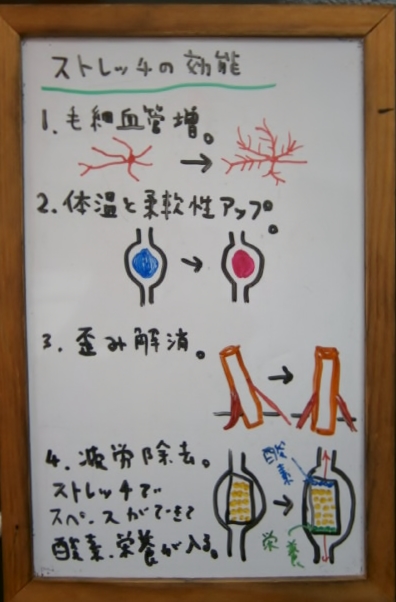 ストレッチの効能
1. 毛細血管増。
2. 体温と柔軟性アップ。
3. 歪み解消。
4. 疲労除去。
ストレッチで
スペースができて
酸素、栄養が入る。
酸素
栄養